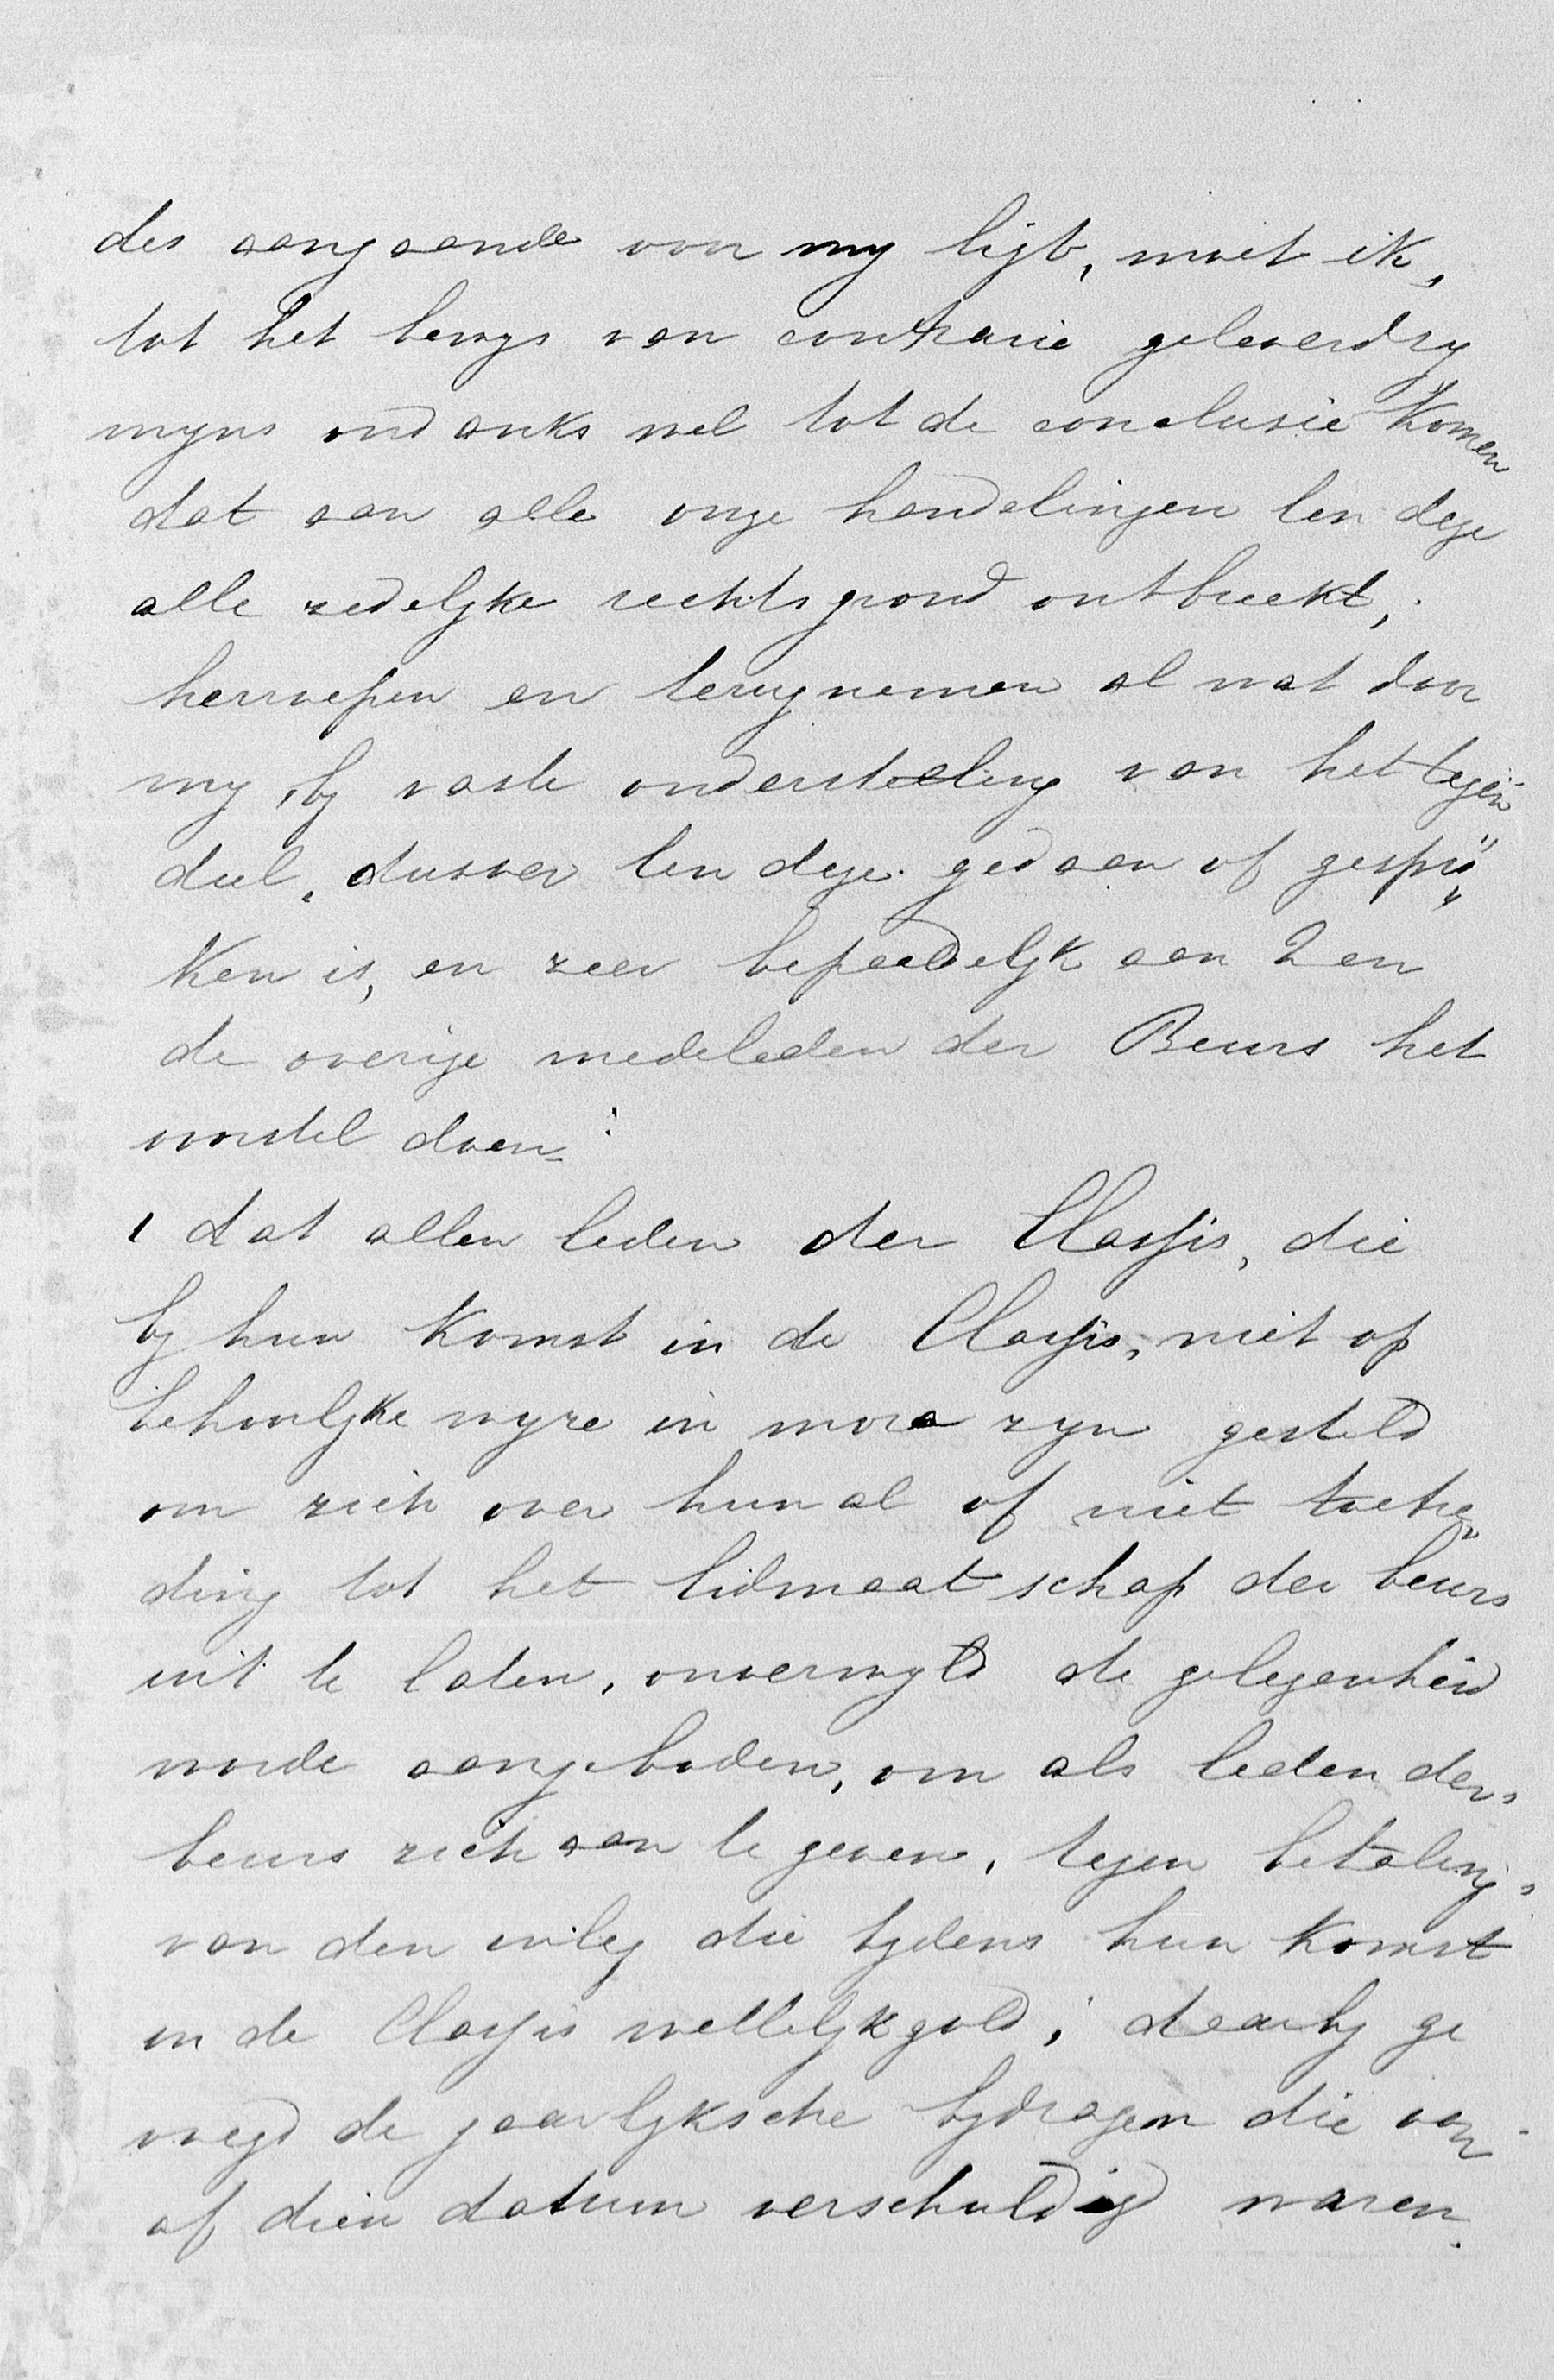 des aangaande voor my ligt, moet ik,
tot het bewys van contrarie geleverd zy
myns ondanks wel tot de conclusie komen
dat aan alle onze handelingen ten deze
alle redelyke rechtsgrond ontbreekt,
herroepen en terugnemen al wat door
my, by vaste onderstelling van het tegen
deel, dusver ten deze gedaan of gespro„
ken is, en zeer bepaaldelyk aan U en
de overige medeleden der Beurs het
voorstel doen:
1 dat allen leden der Classis, die
by hun komst in de Classis, niet op
behoorlyke wyze in mora zyn gesteld
om zich over hun al of niet toetre„
ding tot het lidmaatschap der beurs
uit te laten, onverwyld de gelegenheid
worde aangeboden, om als leden der
beurs zich aan te geven, tegen betaling
van den inleg die tydens hun komst
in de Classis wettelyk gold; daarby ge
voegd de jaarlyksche bydragen die van
af dien datum verschuldigd waren.